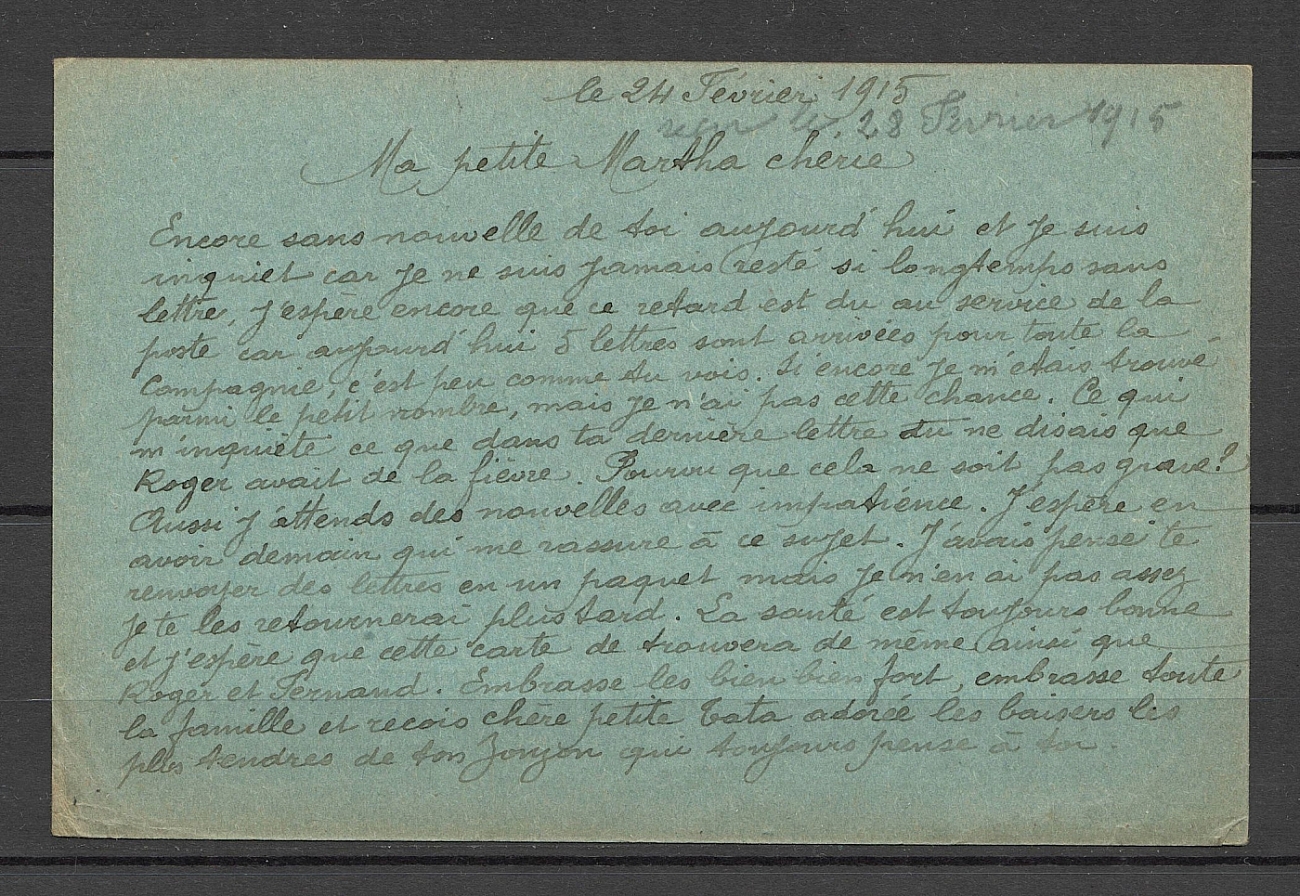 le 24 Février 1915
reçu le 28 Février 1915
Ma petite Martha chérie
Encore sans nouvelle de toi aujourd'hui et je suis
inquiet car je ne suis jamais resté si longtemps sans
lettre, j'espère encore que ce retard est du au service de la
poste car aujourd'hui 5 lettres sont arrivées pour toute la
Compagnie, c'est peu comme tu vois. Si encore je m'étais trouvé
parmi le petit nombre, mais je n'ai pas cette chance. Ce qui
m'inquiète ce que dans ta dernière lettre tu ne disais que
Roger avait de la fièvre. Pourvu que cela ne soit pas grave!
Aussi j'attends des nouvelles avec impatience. J'espère en
avoir demain qui me rassure à ce sujet. J'avais pensé te
renvoyer des lettres en un paquet mais je n'en ai pas assez
je te les retournerai plus tard. La santé est toujours bonne
et j'espère que cette carte de trouvera de même ainsi que
Roger et Fernand. Embrasse les bien bien fort, embrasse toute
la famille et recois chère petite Tata adorée les baisers les
plus tendres de ton qui toujours pense à toi.